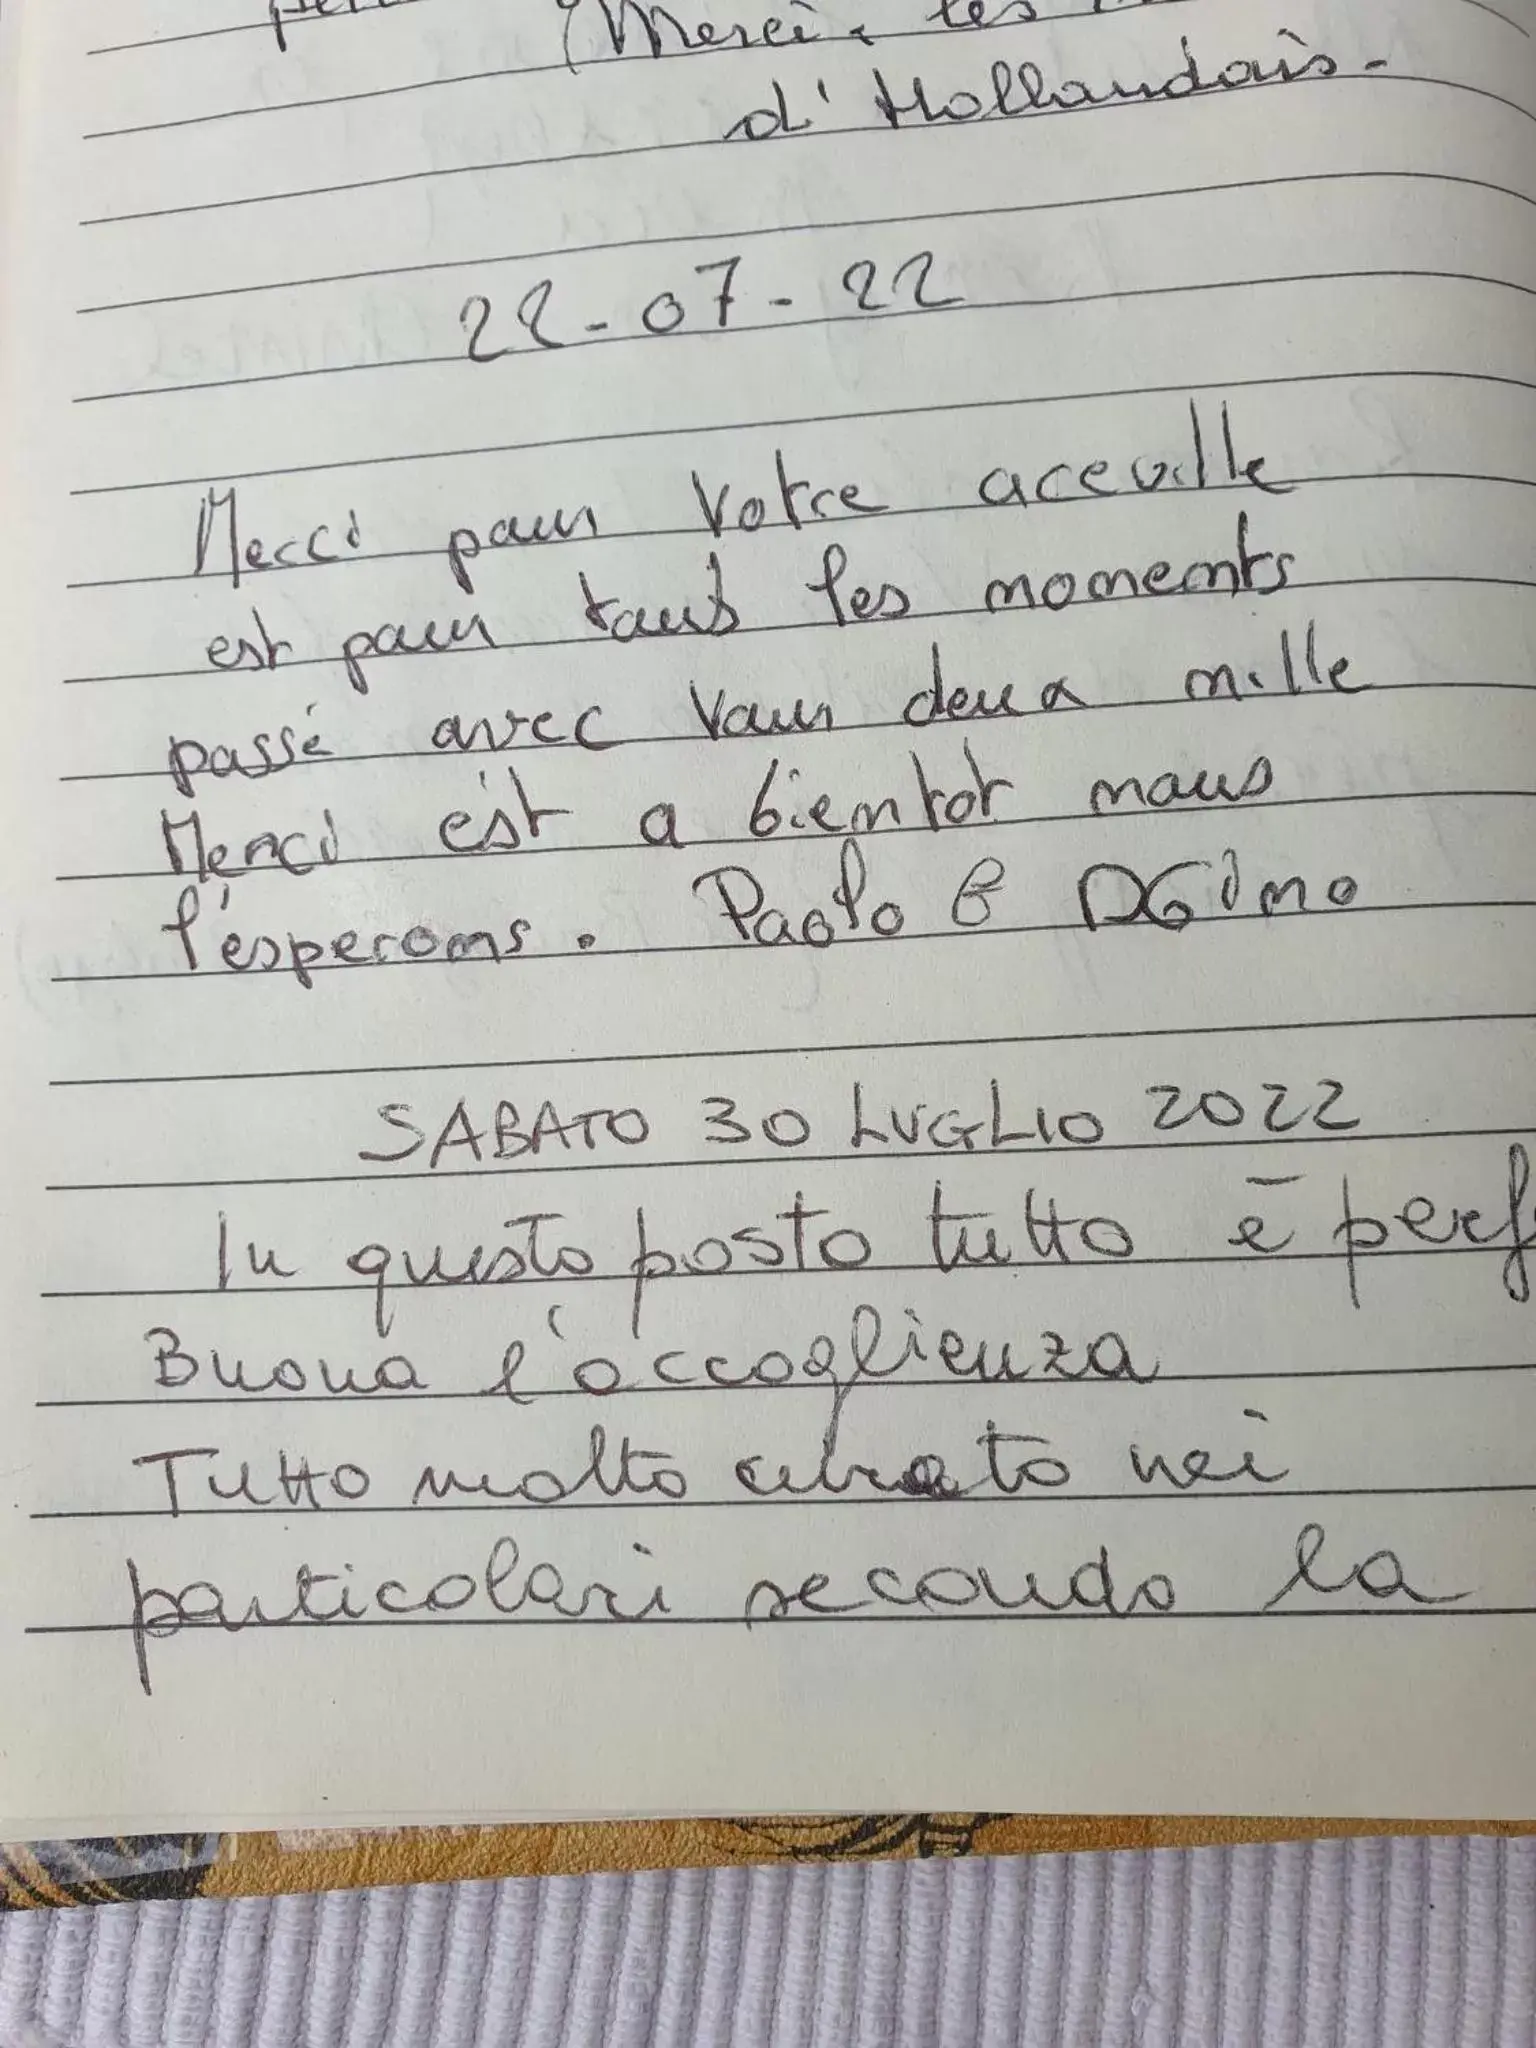 (Merci, les
d'Hollandais.
22-07-22
Merci pour votre aceuille
est pour tout les moments
passé avec vour deux mille
Merci est a bientot nous
l'ésperons. Paolo e
SABATO 30 LUGLIO 2022
In questo posto tutto è perf
Buona l'accoglienza
Tutto molto curato nei
particolari secondo la